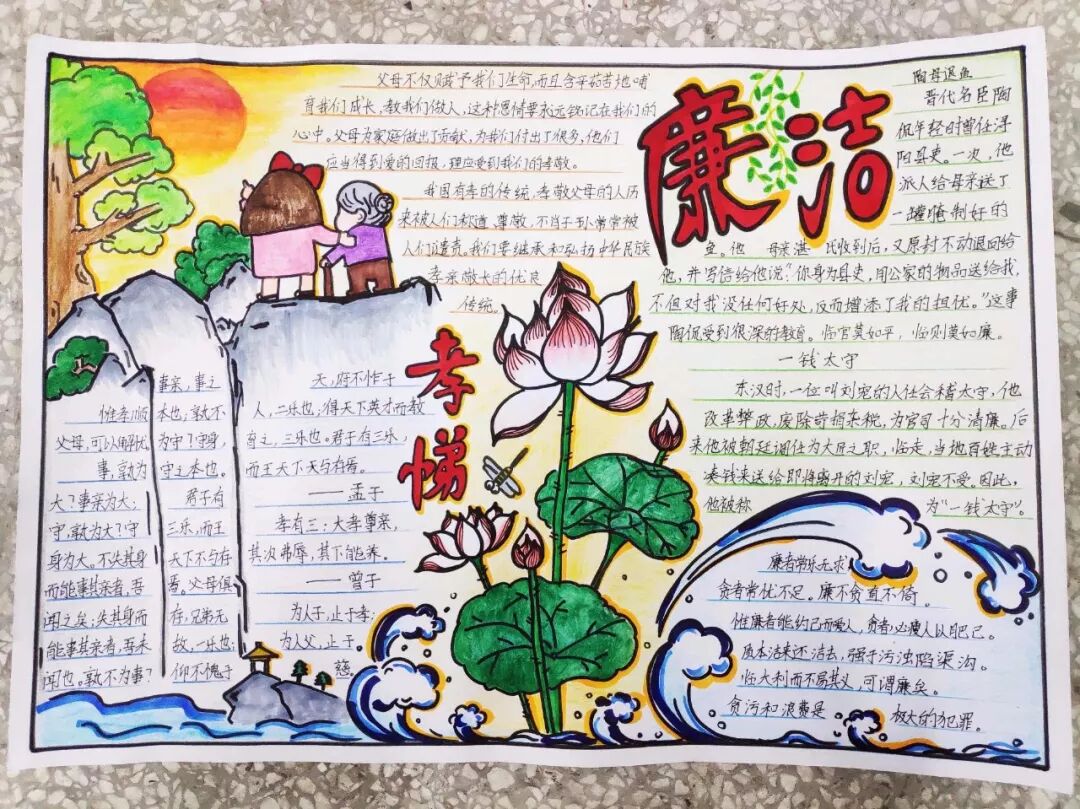 父母不仅赋予我们生命,而且含辛茹苦地哺
育我们成长,教我们做人,这种恩情要永远铭记在我们的
心中。父母为家庭做出了贡献,为我们付出了很多,他们
应当得到爱的回报,理应受到我们的孝敬。
我国有孝的传统,孝敬父母的人历
来被人们称道、尊敬,不肖子孙常常被
人们谴责。我们要继承和弘扬中华民族
孝亲敬长的优良
传统。
孝悌
惟孝顺
父母,可以解忧
事,孰为
大?事亲为大;
守,孰为大?守
身为大。不失其身
而能事其亲者,吾
闻之矣;失其身而
能事其亲者,吾未
闻也。孰不为事?
事亲,事之
本也;孰不
为守?守身,
守之本也。
君子有
三乐,而王
天下不与存
焉。父母俱
存,兄弟无
故,一乐也;
仰不愧于
天,俯不怍于
人,二乐也;得天下英才而教
育之,三乐也。君子有三乐,
而王天下不与存焉。
——孟子
孝有三:大孝尊亲,
其次弗辱,其下能养。
——曾子
为人子,止于孝;
为人父,止于
慈。
廉洁
陶母退鱼
晋代名臣陶
侃年轻时曾任浔
阳县吏。一次,他
派人给母亲送了
一罐腌制好的
鱼。他 母亲湛 氏收到后,又原封不动退回给
他,并写信给他说?你身为县吏,用公家的物品送给我,
不但对我没任何好处,反而增添了我的担忧。"这事
陶侃受到很深的教育。临官莫如平,临财莫如廉。
一钱太守
东汉时,一位叫刘宠的人任会稽太守,他
改革弊政,废除苛捐杂税,为官司十分清廉。后
来他被朝廷调任为大匠之职,临走,当地百姓主动
凑钱来送给即将离开的刘宠,刘宠不受。因此,
他被称 为"一钱太守"。
廉者常乐无求,
贪者常忧不足。廉不贪,直不倚。
惟廉者能约己而爱人,贪者必瘦人以肥己。
质本洁来还洁去,强于污浊陷渠沟。
临大利而不易其义,可谓廉矣。
贪污和浪费是 极大的犯罪。